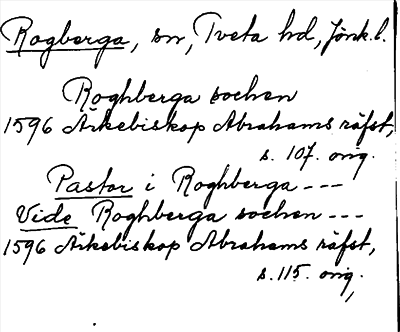 Rogberga, sn, Tveta hd, Jönk.l.
Roghberga sochen
1596 Ärkebiskop Abrahams räfst,
s. 107. orig.
Pastor i Roghberga ---
Vide Roghberga sochen ---
1596 Ärkebiskop Abrahams räfst,
s. 115. orig.